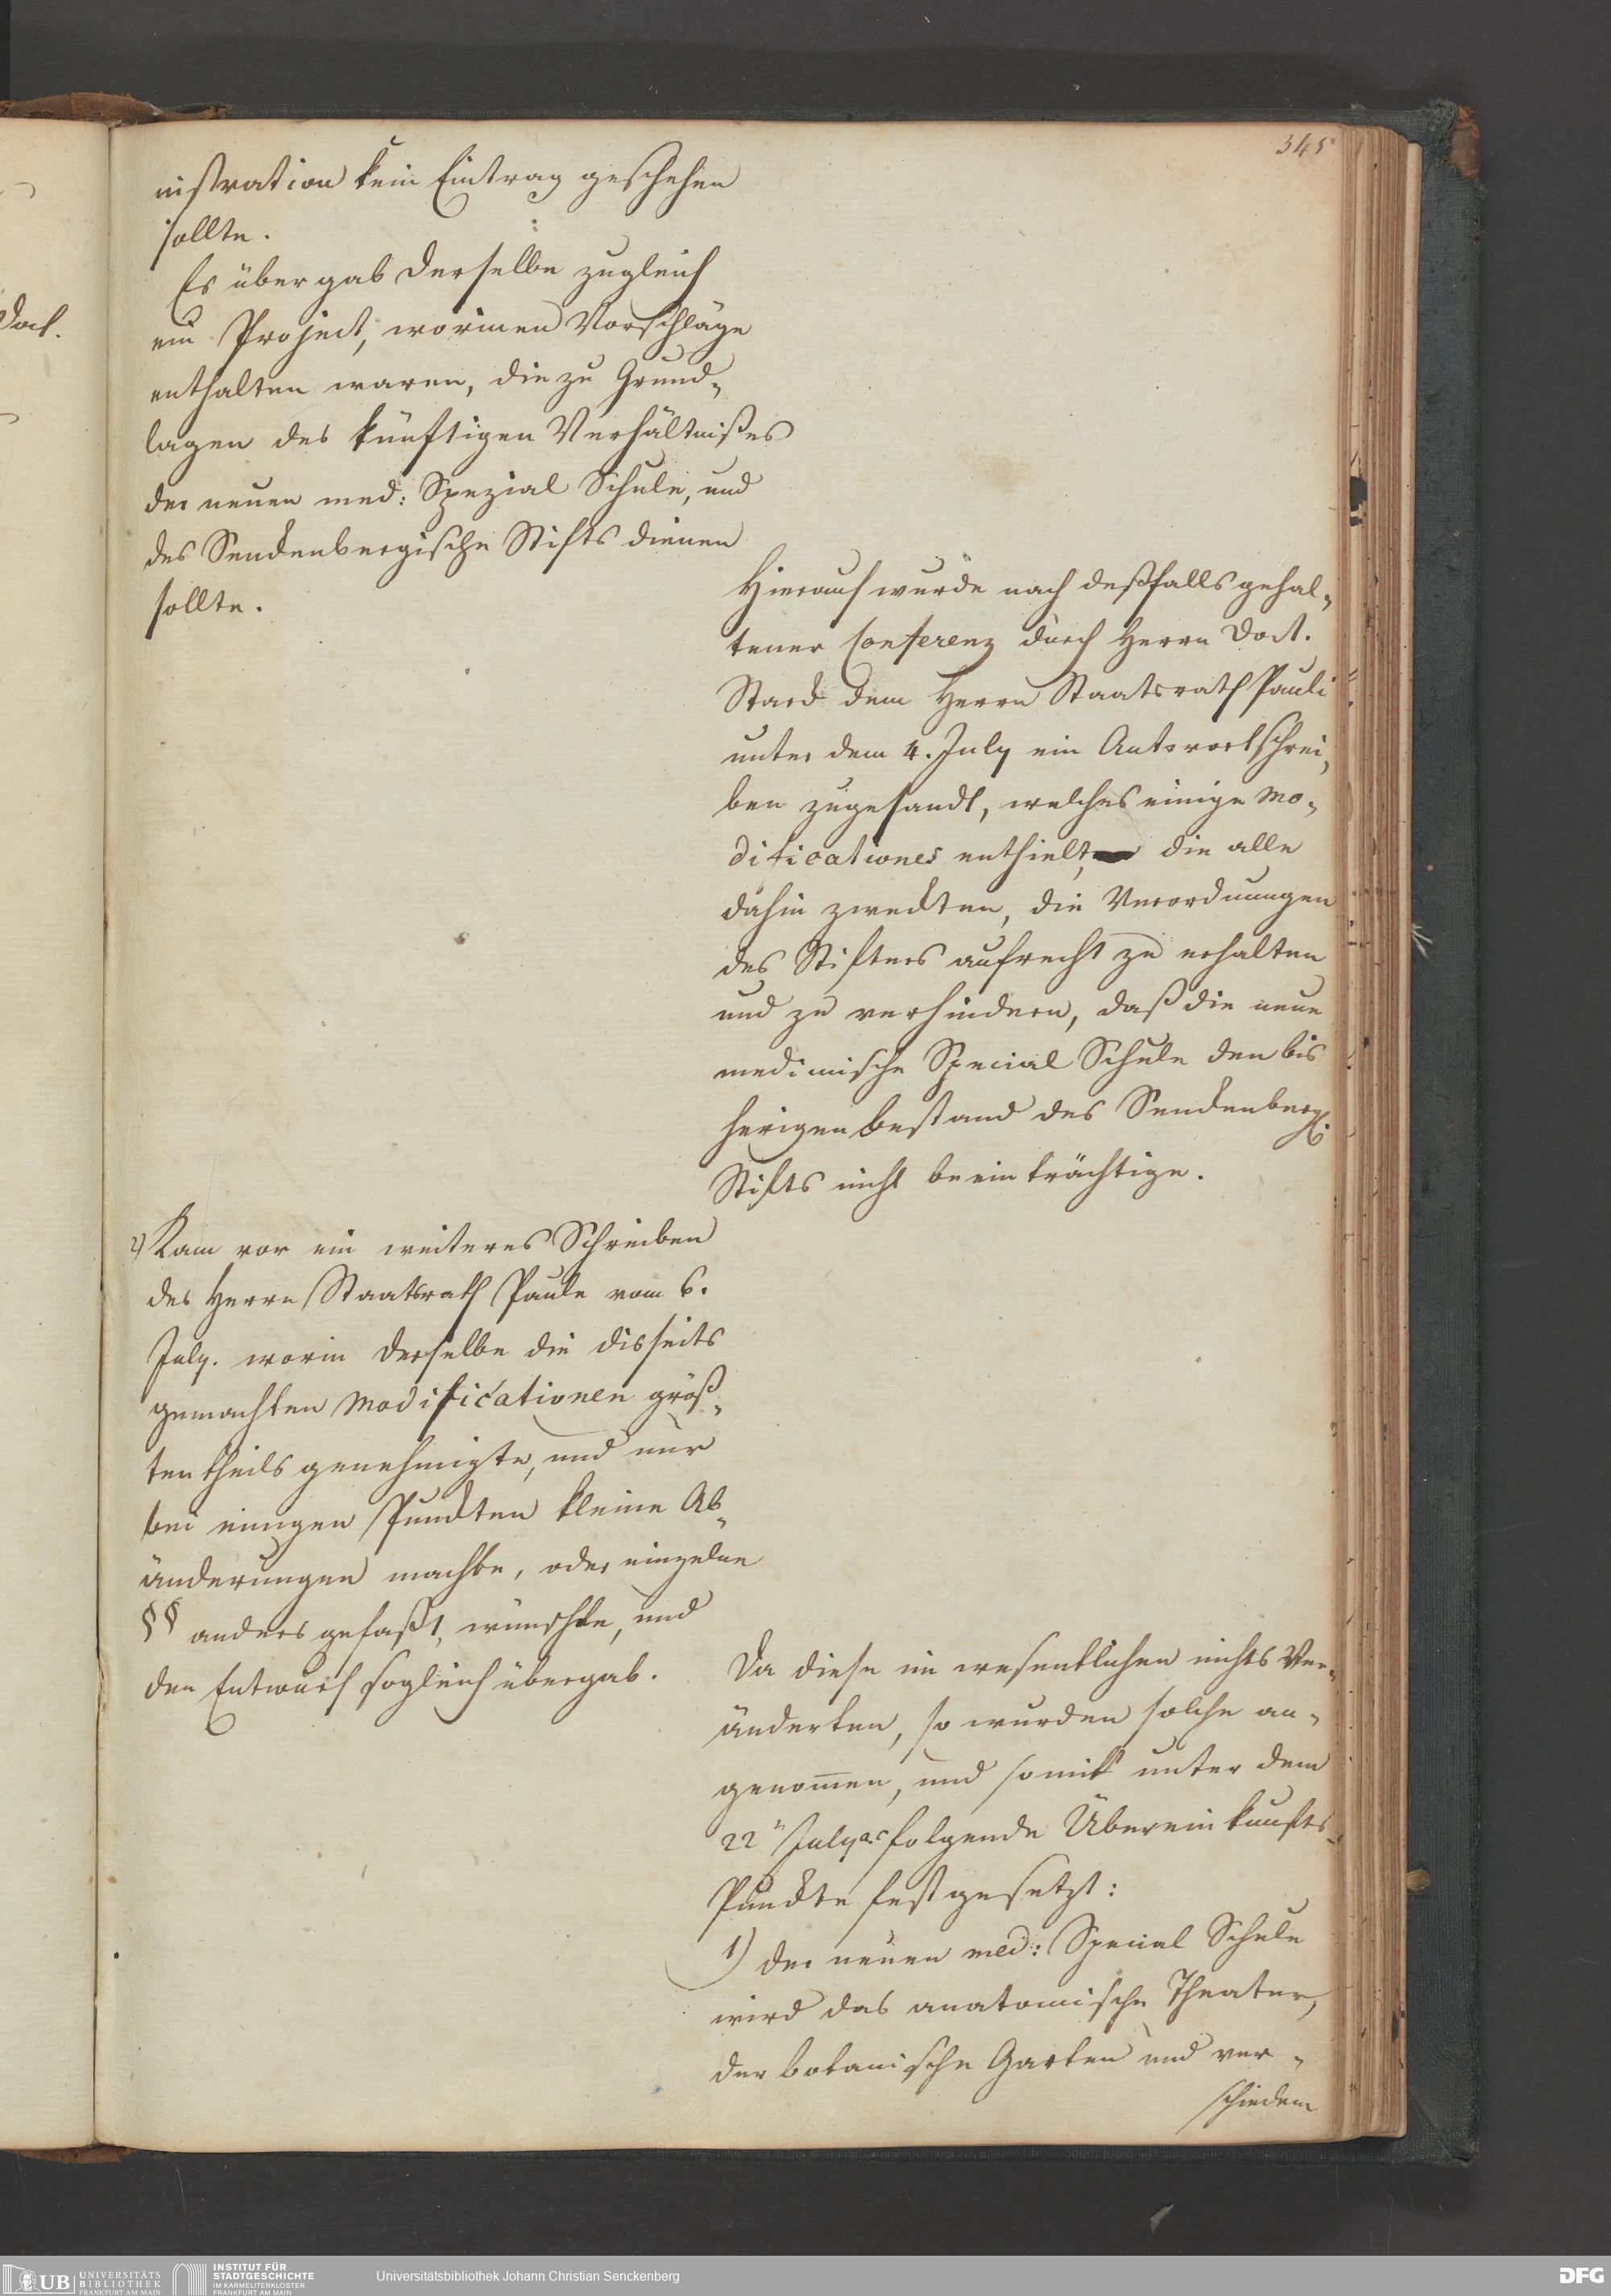 345
nistration kein Eintrag geschehen
sollte.
Es übergab derselbe zugleich
ein Project, worinnen Vorschläge
enthalten waren, die zu Grund¬
lagen des künftigen Verhältnißes
der neuen med: Spezial Schule, und
des Senckenbergische Stifts dienen
sollte.
Hierauf wurde nach deßfalls gehal¬
tener Conferenz durch Herrn Doct.
Starck dem Herrn Staatsrath Pauli
unter dem 4. July ein Antwortschrei¬
ben zugesandt, welches einige Mo¬
dificationes enthielt, die alle
dahin zweckten, die Verordnungen
des Stifters aufrecht zu erhalten
und zu verhindern, daß die neue
medicinische Special Schule den bis
herigen Bestand des Senckenberg.
Stifts nicht beeinträchtige.
2) Kam vor ein weiteres Schreiben
des Herrn Staatsrath Paule vom 6.
July. worin derselbe die disseits
gemachten Modificationen größ¬
tentheils genehmigte, und nur
bei einigen Punckten kleine Ab¬
änderungen machte, oder einzelne
§§ anders gefaßt, wünschte, und
den Entwurf sogleich übergab.
Da diese im wesentlichen nichts Ver¬
änderten, so wurden solche an¬
genom̅en, und somit unter dem
22" July a.c. folgende Übereinkunfts¬
Punckte festgesetzt:
1) der neuen med: Special Schule
wird das anatomische Theater,
der botanische Garten und ver¬
schiedene
Doct.
UB UNIVERSITÄTS
BIBLIOTHEK
FRANKFURT AM MAIN
INSTITUT FÜR
STADTGESCHICHTE
IM KARMELITERKLOSTER
FRANKFURT AM MAIN
Universitätsbibliothek Johann Christian Senckenberg
DFG